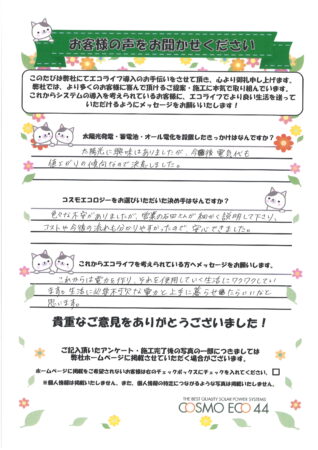 お客様の声をお聞かせください
このたびは弊社にてエコライフ導入のお手伝いをさせて頂き、心より御礼申し上げます。
弊社では、より多くのお客様に喜んで頂けるご提案・施工に本気で取り組んでいます。
これからシステムの導入を考えられているお客様に、エコライフでより良い生活を送って
いただけるようにメッセージをお願いします！
太陽光発電・蓄電池・オール電化を設置したきっかけはなんですか？
太陽光に興味はありましたが、今後電気代も
値上がりの傾向なので決意しました。
コスモエコロジーをお選びいただいた決め手はなんですか？
色々な不安がありましたが、営業の石田さんが細かく説明して下さり、
コストや今後の流れも分かりやすかったので、安心できました。
これからエコライフを考えられている方へメッセージをお願いします。
これからは電力を作り、それを使用していく生活にワクワクしてい
ます。生活に必要不可欠な電力と上手に暮らせたらいいなと
思います。
貴重なご意見をありがとうございました！
ご記入頂いたアンケート・施工完了後の写真の一部につきましては
弊社ホームページに掲載させていただく場合がございます。
ホームページに掲載をご希望されないお客様は右のチェックボックスにチェックを入れてください。
※個人情報は掲載いたしません、また、個人情報の特定につながるような写真は掲載いたしません。
THE BEST QUALITY SOLAR POWER SYSTEMS
COSMO ECO 44